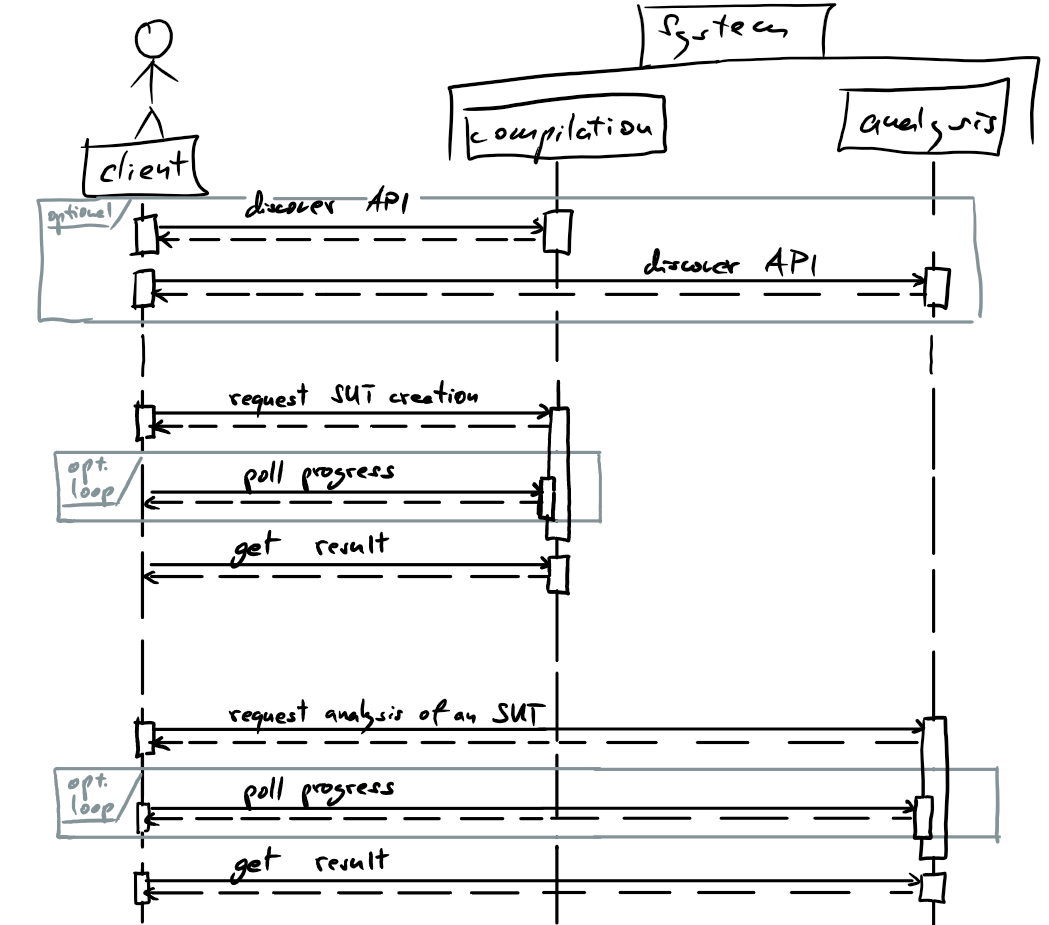 System
compilation
analysis
client
optional
discover API
discover API
request SUT creation
opt.
loop
poll progress
get result
request analysis of an SUT
opt.
loop
poll progress
get result